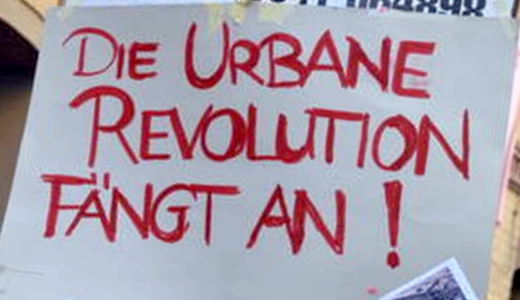 DIE URBANE
REVOLUTION
FÄNGT AN !